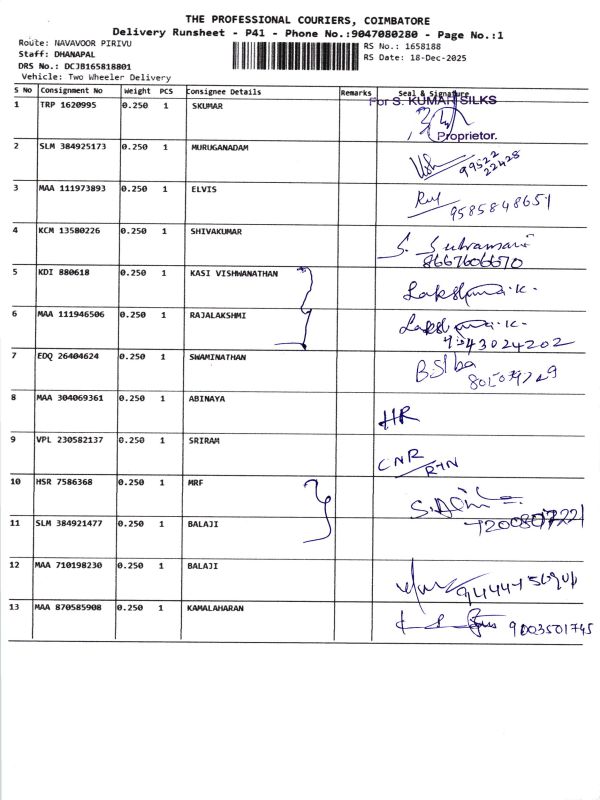 THE PROFESSIONAL COURIERS, COIMBATORE
Delivery Runsheet - P41 - Phone No.:9047080280 - Page No.:1
Route: NAVAVOOR PIRIVU
Staff: DHANAPAL
DRS No.: DCJB165818801
Vehicle: Two Wheeler Delivery
RS No.: 1658188
RS Date: 18-Dec-2025
S No Consignment No Weight PCS Consignee Details Remarks Seal & Signature
For S. KUMAR SILKS
1 TRP 1620995 0.250 1 SKUMAR
Proprietor.
2 SLM 384925173 0.250 1 MURUGANADAM
99522
22428
3 MAA 111973893 0.250 1 ELVIS
9585848651
4 KCM 13580226 0.250 1 SHIVAKUMAR S. Subramani
8667606670
5 KDI 880618 0.250 1 KASI VISHWANATHAN Lakshmana.K.
6 MAA 111946506 0.250 1 RAJALAKSHMI Lakshmana.K.
43024202
7 EDQ 26404624 0.250 1 SWAMINATHAN
8 MAA 304069361 0.250 1 ABINAYA HR
9 VPL 230582137 0.250 1 SRIRAM CNR/RTN
10 HSR 7586368 0.250 1 MRF
11 SLM 384921477 0.250 1 BALAJI
12 MAA 710198230 0.250 1 BALAJI
13 MAA 870585908 0.250 1 KAMALAHARAN 9003501745